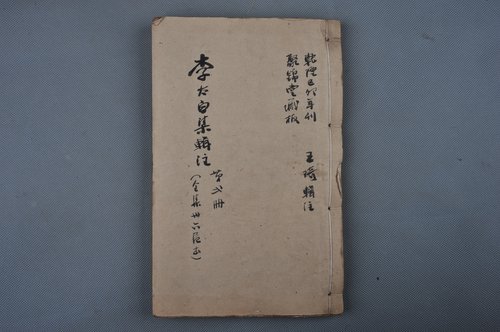 乾隆己卯年刊
聚锦堂藏板
王琦輯注
李太白集輯注
第弍册
(全集卅六卷)